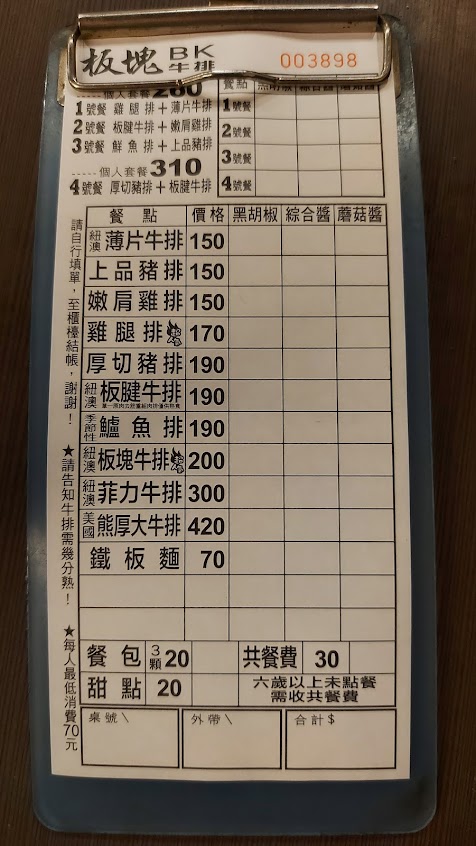 板塊 BK 牛排
003898
個人套餐 260
1號餐 雞腿排+薄片牛排
2號餐 板腱牛排+嫩肩雞排
3號餐 鮮魚排+上品豬排
個人套餐 310
4號餐 厚切豬排+板腱牛排
餐點 黑胡椒 綜合醬 蘑菇醬
1號餐
2號餐
3號餐
4號餐
餐點 價格 黑胡椒 綜合醬 蘑菇醬
紐澳 薄片牛排 150
上品豬排 150
嫩肩雞排 150
雞腿排 170
厚切豬排 190
紐澳 板腱牛排 190
季節性 鱸魚排 190
紐澳 板塊牛排 200
紐澳 菲力牛排 300
美國 熊厚大牛排 420
鐵板麵 70
餐包 3顆 20 共餐費 30
甜點 20 六歲以上未點餐
需收共餐費
桌號\ 外帶\ 合計$
請自行填單,至櫃檯結帳,謝謝!
★請告知牛排需幾分熟!
★每人最低消費70元